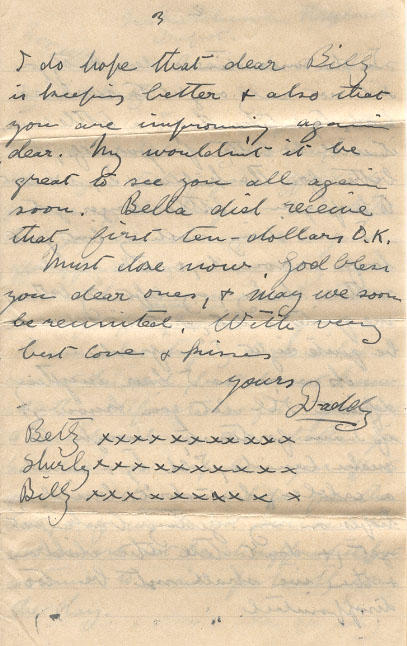 3
I do hope that dear Billy
is keeping better & also that
you are improving again
dear. My wouldn't it be
great to see you all again
soon. Bella did receive
that first ten-dollars O.K.
Must close now, God bless
you dear ones, & may we soon
be reunited. With very
best love & kisses
yours
Daddy
Betty xxxxxxxxxxx
Shirley xxxxxxxxxxx
Billy xxxxxxxxxx x